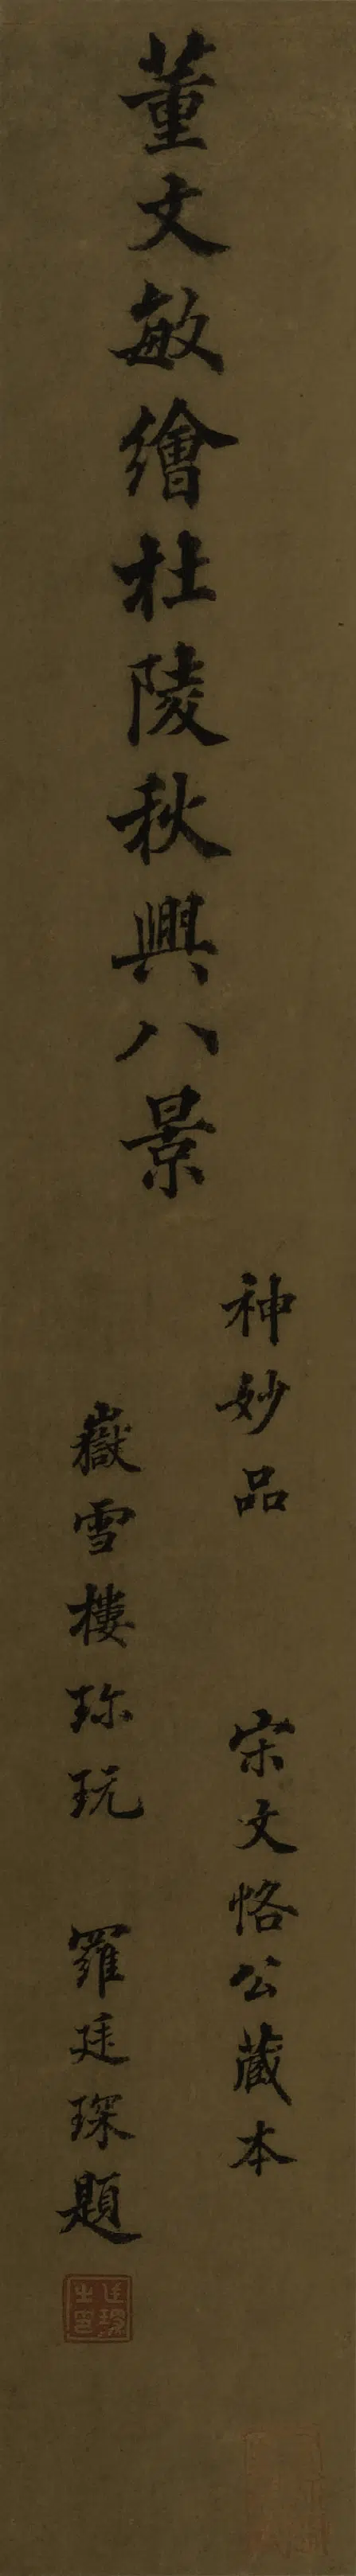 董文敏繪杜陵秋興八景
神妙品 宋文恪公藏本
嶽雪樓珎玩 羅廷琛題
廷琛之印